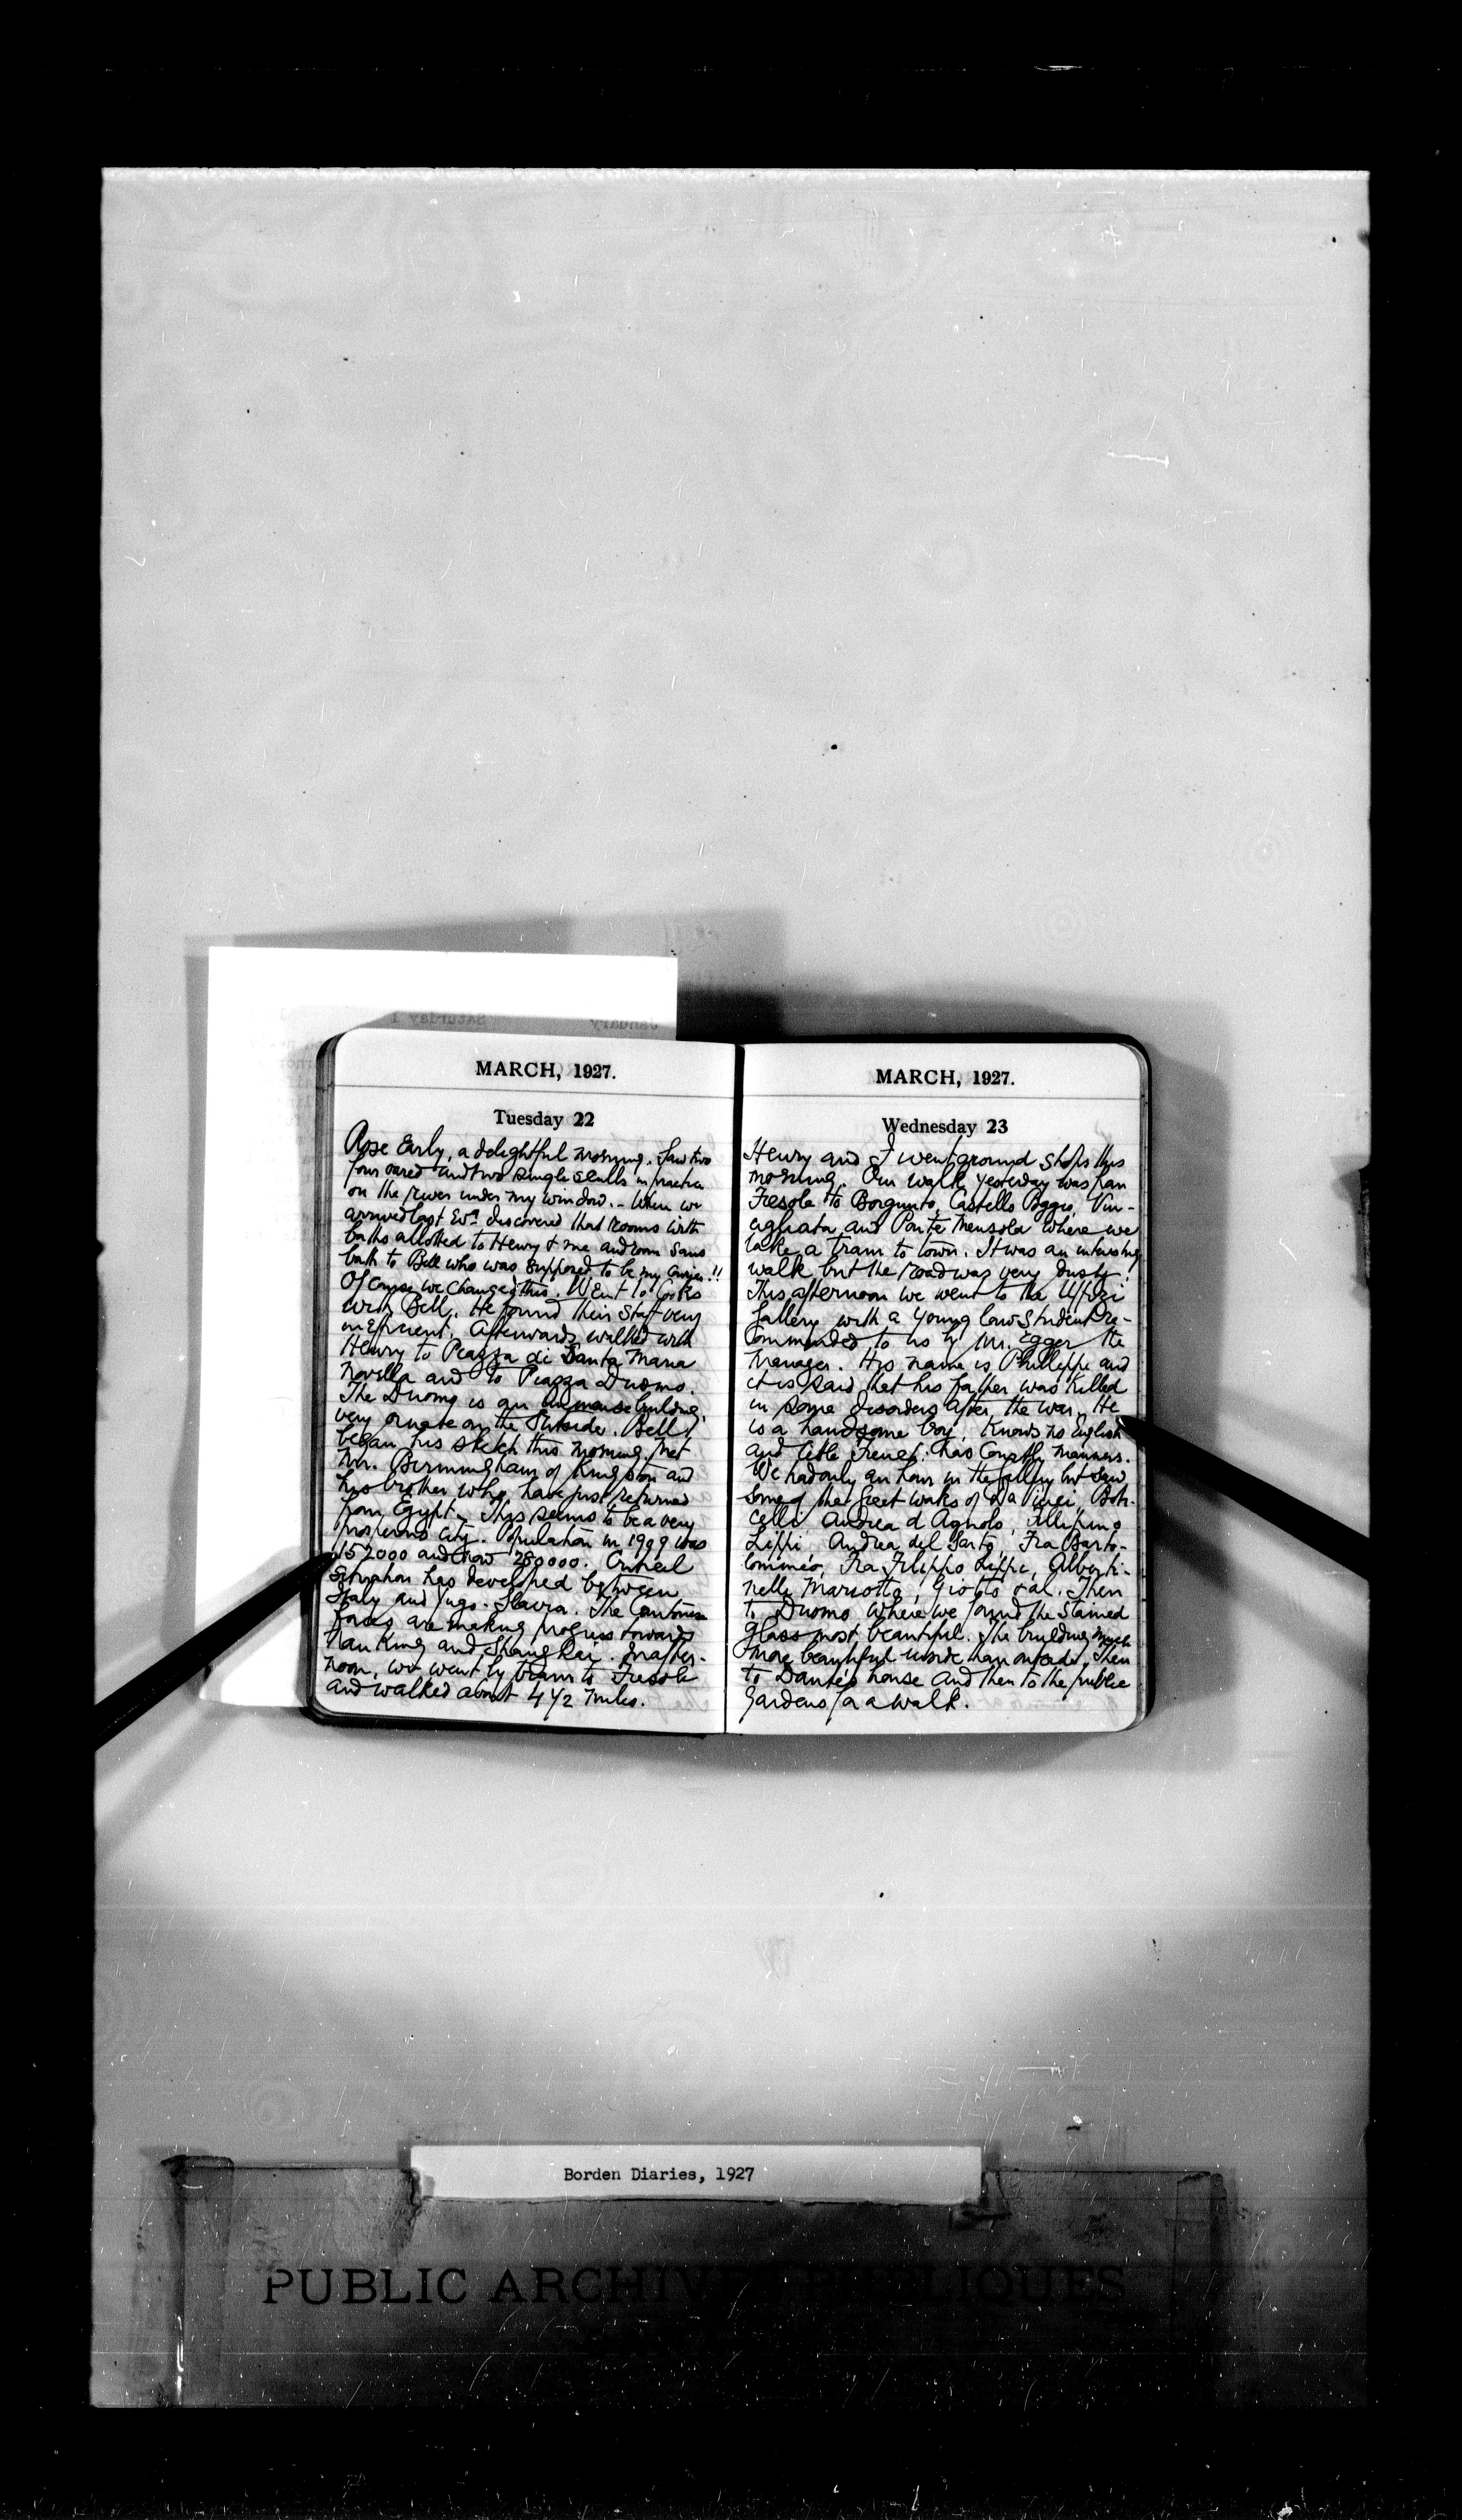 MARCH, 1927.
Tuesday 22
Rose Early, a delightful morning. Saw two
four oared and two single sculls in practice
on the river under my window. - When we
arrived last Evg discovered that rooms with
baths allotted to Henry & me and room sans
bath to Bell who was supposed to be my Courier!!
Of course we changed this. Went to Cooks
with Bell. He found their staff very
inefficient. Afterwards walked with
Henry to Piazza di Santa Maria
Novella and to Piazza Duomo.
The Duomo is an immense building,
very ornate on the outside. Bell
began his sketch this morning. Met
Mr. Birmingham of Kingston and
his brother who have just returned
from Egypt. This seems to be a very
prosperous city. Population in 1909 was
152000 and now 280000. Critical
situation has developed between
Italy and Jugo-Slavia. The Cantonese
forces are making progress towards
Nanking and Shanghai. In after-
noon, we went by tram to Fiesole
and walked about 4 1/2 miles.
MARCH, 1927.
Wednesday 23
Henry and I went around shops this
morning. Our walk yesterday was from
Fiesole to Borgunto, Castello Poggio, Vin-
cigliata and Ponte Mensola where we
take a tram to town. It was an interesting
walk but the road was very dusty!
This afternoon we went to the Uffizi
Gallery with a young law student re-
commended to us by Mr. Egger the
Manager. His name is Philleppi and
it is said that his father was killed
in some disorders after the war. He
is a handsome boy, Knows no English
and little French: has Courtly manners.
We had only an hour in the gallery but saw
some of the great works of Da Vinci, Boti-
celli Andrea d Agnolo, Fillipino
Lippi Andrea del Sarto, Fra Barto-
lommeo, Fra Filippo Lippi, Alberti-
nelli Mariotto, Giotto & al. Then
to Duomo, where we found the stained
glass most beautiful. The building much
more beautiful inside than outside. Then
to Dante's house and then to the public
gardens for a walk.
Borden Diaries, 1927
PUBLIC ARCHIVES PUBLIQUES